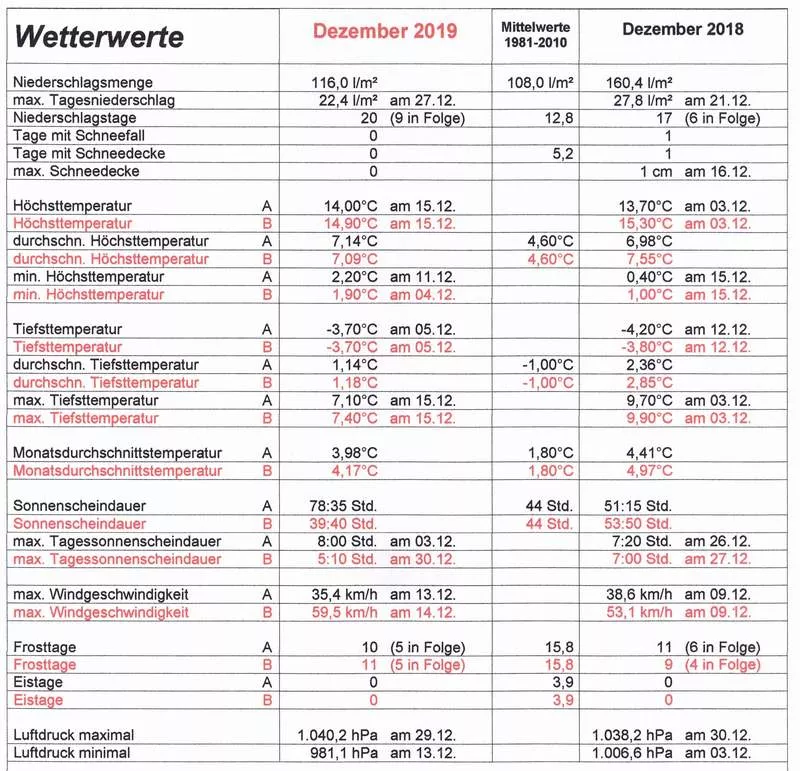 Wetterwerte Dezember 2019 Mittelwerte 1981-2010 Dezember 2018
Niederschlagsmenge 116,0 l/m² 108,0 l/m² 160,4 l/m²
max. Tagesniederschlag 22,4 l/m² am 27.12. 27,8 l/m² am 21.12.
Niederschlagstage 20 (9 in Folge) 12,8 17 (6 in Folge)
Tage mit Schneefall 0 1
Tage mit Schneedecke 0 5,2 1
max. Schneedecke 0 1 cm am 16.12.
Höchsttemperatur A 14,00°C am 15.12. 13,70°C am 03.12.
Höchsttemperatur B 14,90°C am 15.12. 15,30°C am 03.12.
durchschn. Höchsttemperatur A 7,14°C 4,60°C 6,98°C
durchschn. Höchsttemperatur B 7,09°C 4,60°C 7,55°C
min. Höchsttemperatur A 2,20°C am 11.12. 0,40°C am 15.12.
min. Höchsttemperatur B 1,90°C am 04.12. 1,00°C am 15.12.
Tiefsttemperatur A -3,70°C am 05.12. -4,20°C am 12.12.
Tiefsttemperatur B -3,70°C am 05.12. -3,80°C am 12.12.
durchschn. Tiefsttemperatur A 1,14°C -1,00°C 2,36°C
durchschn. Tiefsttemperatur B 1,18°C -1,00°C 2,85°C
max. Tiefsttemperatur A 7,10°C am 15.12. 9,70°C am 03.12.
max. Tiefsttemperatur B 7,40°C am 15.12. 9,90°C am 03.12.
Monatsdurchschnittstemperatur A 3,98°C 1,80°C 4,41°C
Monatsdurchschnittstemperatur B 4,17°C 1,80°C 4,97°C
Sonnenscheindauer A 78:35 Std. 44 Std. 51:15 Std.
Sonnenscheindauer B 39:40 Std. 44 Std. 53:50 Std.
max. Tagessonnenscheindauer A 8:00 Std. am 03.12. 7:20 Std. am 26.12.
max. Tagessonnenscheindauer B 5:10 Std. am 30.12. 7:00 Std. am 27.12.
max. Windgeschwindigkeit A 35,4 km/h am 13.12. 38,6 km/h am 09.12.
max. Windgeschwindigkeit B 59,5 km/h am 14.12. 53,1 km/h am 09.12.
Frosttage A 10 (5 in Folge) 15,8 11 (6 in Folge)
Frosttage B 11 (5 in Folge) 15,8 9 (4 in Folge)
Eistage A 0 3,9 0
Eistage B 0 3,9 0
Luftdruck maximal 1.040,2 hPa am 29.12. 1.038,2 hPa am 30.12.
Luftdruck minimal 981,1 hPa am 13.12. 1.006,6 hPa am 03.12.